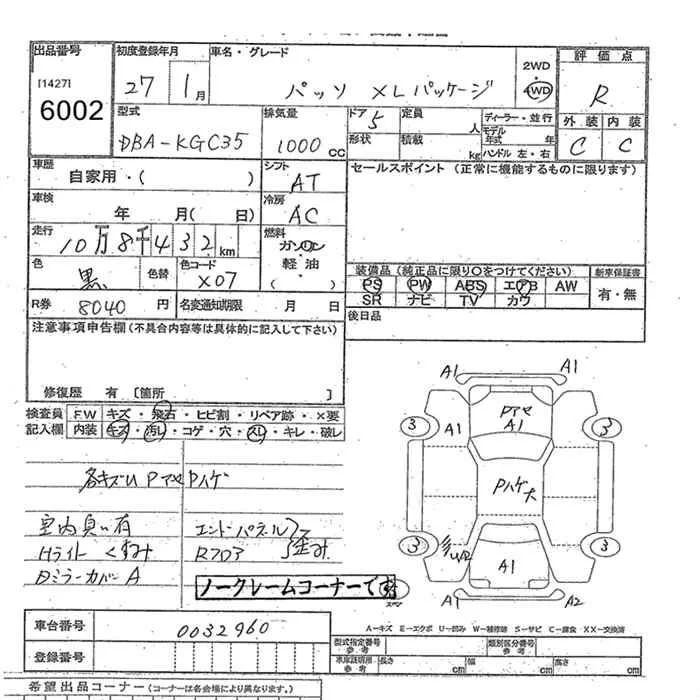 出品番号 初度登録年月 車名・グレード 評価点
[1427] 6002 27 1月 パッソ XLパッケージ 2WD・4WD R
型式 排気量 ドア 定員 ディーラー・並行 外装 内装
DBA-KGC35 1000cc 5 人 モデル年式 年 C C
形状 積載 kg ハンドル 左・右
車歴 シフト セールスポイント (正常に機能するものに限ります)
自家用・( ) AT
車検 冷房
年 月( 日) AC
走行 燃料
10万8千432km ガソリン・軽油・( )
色 色替 色コード 装備品(純正品に限り○をつけてください) 新車保証書
黒 X07 PS PW ABS エアB AW 有・無
SR ナビ TV カワ
R券 8040円 名変通知期限 月 日 後日品
注意事項申告欄(不具合内容等は具体的に記入して下さい)
修復歴 有 〔箇所 〕
検査員 F.W キズ・飛石・ヒビ割・リペア跡・×要
記入欄 内装 キズ・汚レ・コゲ・穴・スレ・キレ・破レ
各キズU Pアセ Pハゲ
室内臭い有 エンドパネル
Hライト くすみ Rフロア 歪み
Dミラーカバー A
ノークレームコーナーです
A1 A1
Pアセ
A1 A1
3 3
Pハゲ大
3 3
UP
A1
A1 A2
A-キズ E-エクボ U-凹み W-補修跡 S-サビ C-腐食 XX-交換済
車台番号 0032960
型式指定番号 参考 類別区分番号 参考
登録番号 車庫証明用 参考 長さ cm 幅 cm 高さ cm
希望出品コーナー(コーナーは各会場により異なります。)